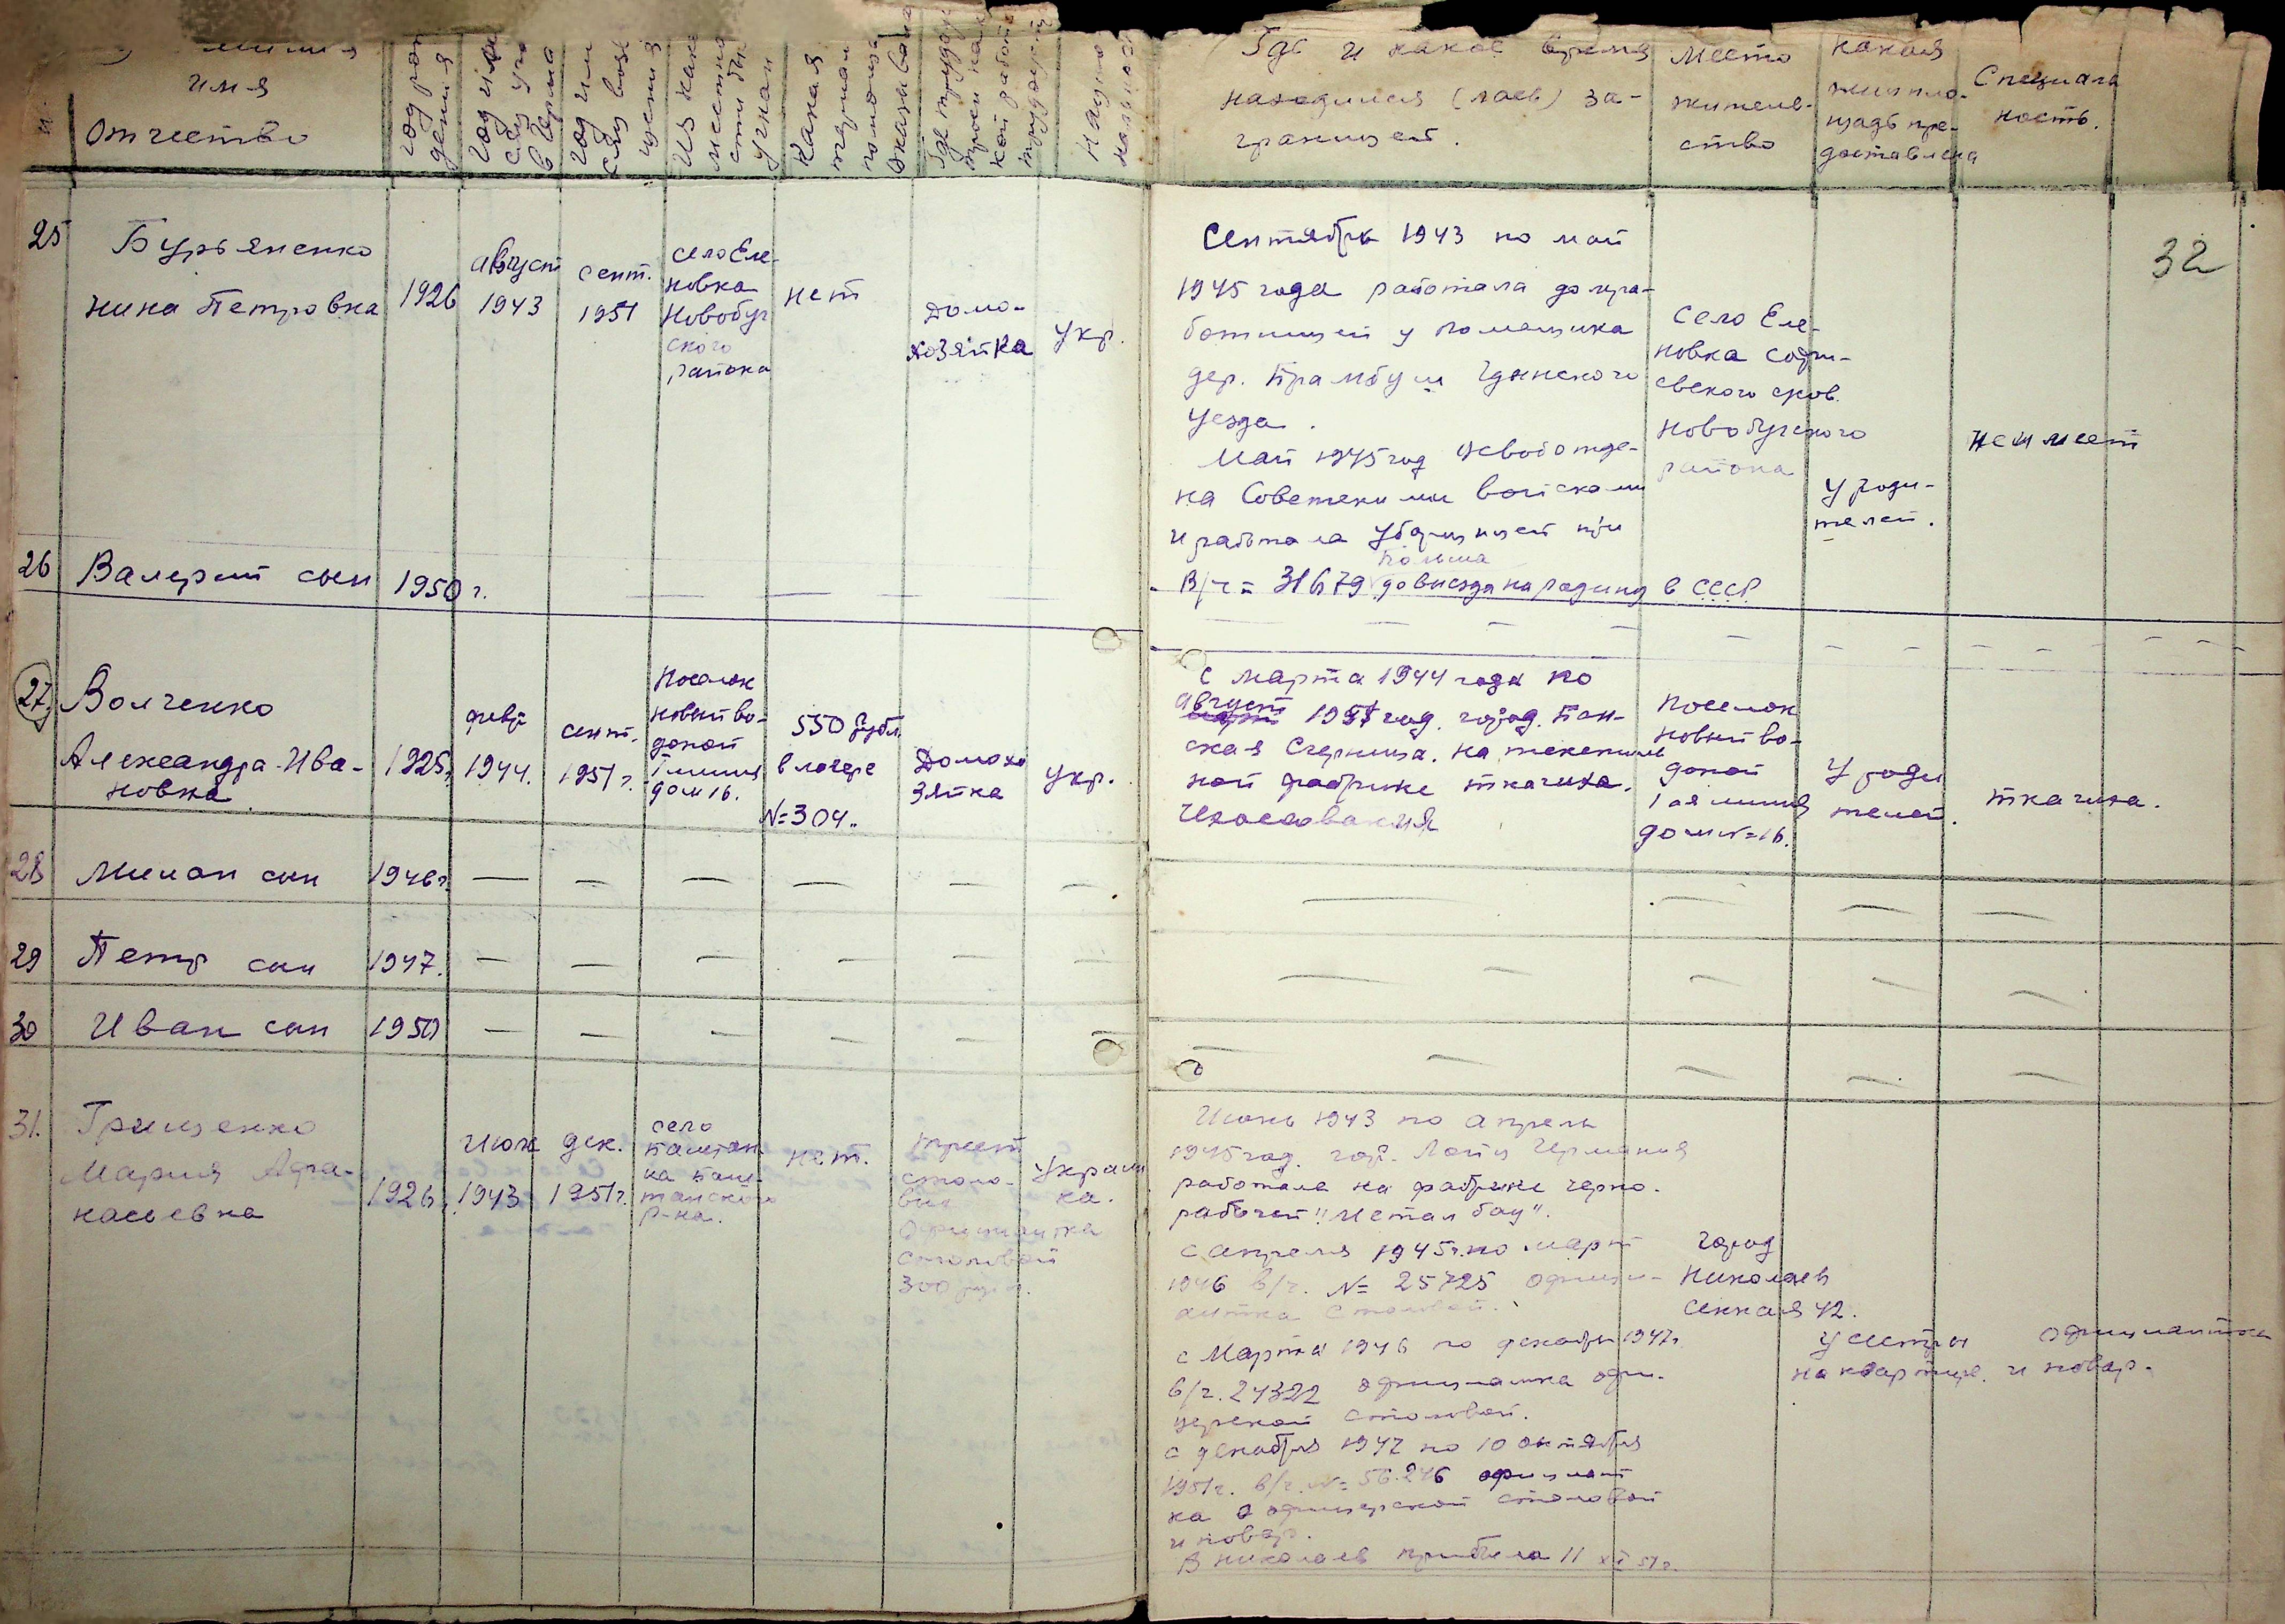 имя
отчество
год рож
дения
Год и ме
сяц уго
в Герма
год и м
сяц возв
щения
Из како
местно
сти бы
угнан
Какая
матерьял
помощь
оказыва
Где трудоус
троен на
кой работ
трудоуст
Нацио
нальност
Где и какое время
находился (лась) за-
границей.
Место
жительс-
ство
какая
жил пло-
щадь пре-
доставлена
Специаль
ность.
32
25
Бурьяненко
Нина Петровна
1926
август
1943
сент.
1951
село Еле-
новка
Новобуг
ского
района
нет
Домо-
хозяйка
Укр.
Сентябрь 1943 по май
1945 года работала домра-
ботницей у помещика
дер. Уезда.
Май 1945 год освобожде-
на Советскими войсками
и работала уборщицей при
Польша
В/ч = 31679 до выезда на родину в СССР
Село Еле-
новка Софи-
евского сков.
Новобугского
района
У роди-
телей.
не имеет
26
Валерий сын
1950 г.
27.
Волченко
Александра Ива-
новна
1925г.
февр
1944.
сент.
1951 г.
Поселок
новый во-
допой
1 линия
дом 16.
550 рубл.
в лагере
№ 304..
Домохо
зяйка
Укр.
С марта 1944 года по
август
1951 год. город. Пан-
ская на текстиль
ной фабрике ткачиха.
Чехословакия
поселок
новый во-
допой
1 ая линия
дом № 16.
У роди
телей.
ткачиха.
28
Милан сын
1946г.
29
Петр сын
1947.
30
Иван сын
1950
31.
Грищенко
Мария Афа-
насьевна
1926.
Июн
1943
дек.
1951г.
село
Баштан
ка Баш-
танского
р-на.
нет.
трест
столо-
вых
официантка
столовой
300 рубл.
Украин
ка.
Июнь 1943 по апрель
1945 год. гор. Германия
работала на фабрике черно-
рабочей "Метал бау".
с апреля 1945 г. по март
1946 в/ч. № 25725 официа-
антка столовой.
с Марта 1946 по декабрь 1947г
в/ч. 24322 официантка офи-
церской столовой.
с декабря 1947 по 10 октября
1951г. в/ч. № 56.246 официант
ка в офицерской столовой
и повар.
В Николаев прибыла 11 XI 51 г.
город
Николаев
Сенная 42.
у сестры
на квартире.
официантка
и повар.